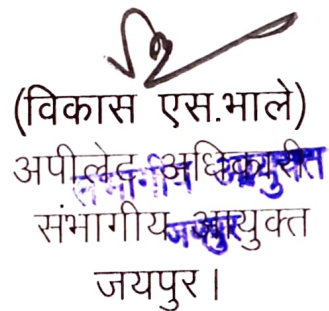 (विकास एस.भाले)
अपीलेट अधिकारी
संभागीय आयुक्त
जयपुर।
संभागीय आयुक्त
जयपुर